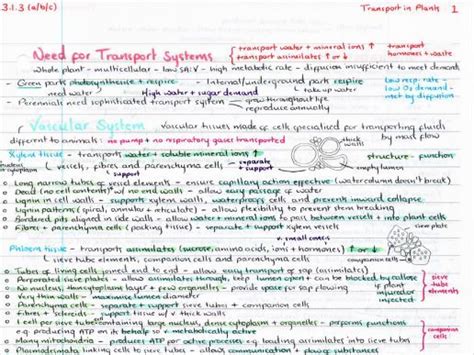 3.1.3 (a/b/c) Transport in Plants 1
Need for Transport Systems { transport water + mineral ions ↑ transport
transport assimilates ↑ or ↓ hormones + waste
whole plant - multicellular - low SA:V - high metabolic rate - diffusion insufficient to meet demand
- Green parts photosynthesise + respire - Internal/underground parts respire low resp. rate -
need water High water + sugar demand take up water low O₂ demand -
- Perennials need sophisticated transport system grow throughout life met by diffusion
reproduce annually
Vascular System vascular tissues made of cells specialised for transporting fluids
different to animals: no pump + no respiratory gases transported by mass flow
thick walls
Xylem tissue - transports water + soluble mineral ions ↑ structure - function
vessels, fibres and parenchyma cells - separate + support empty lumen
support
o Long narrow tubes of vessel elements - ensure capillary action effective (water column doesn't break)
o Dead (no cell contents) w/ no end walls - allow easy passage of water
o Lignin in cell walls - supports xylem walls, waterproofs cells and prevents inward collapse
o Lignin patterns (spiral, annular + reticulate) - allow flexibility to prevent stem breaking
o Bordered pits aligned in side walls - allow water + mineral ions to pass between vessels + into plant cells
o Fibres + parenchyma cells (packing tissue) - separate + support vessels sieve plate
small comers
Phloem tissue - transports assimilates (sucrose, amino acids, ions + hormones) ↑ or ↓
sieve tube elements, companion cells and parenchyma cells companion cells
o Tubes of living cells joined end to end - allow easy transport of sap (assimilates)
o Perforated sieve plates - allow assimilates through, keep lumen open + can be blocked by callose sieve
o No nucleus, thin cytoplasm layer + few organelles - provide space for sap flowing if plant tube
o Very thin walls - maximise lumen diameter damaged or elements
o Parenchyma cells - separate + support sieve tubes + companion cells infected
o Fibres + sclereids - support tissue w/ thick walls
o 1 cell per sieve tube containing large nucleus, dense cytoplasm + organelles - performs functions
e.g. producing ATP in metabolically companion
o Many mitochondria - produce ATP for active processes e.g. loading assimilates into sieve tubes cells
o Plasmodesmata linking cells to sieve tubes - allows communication